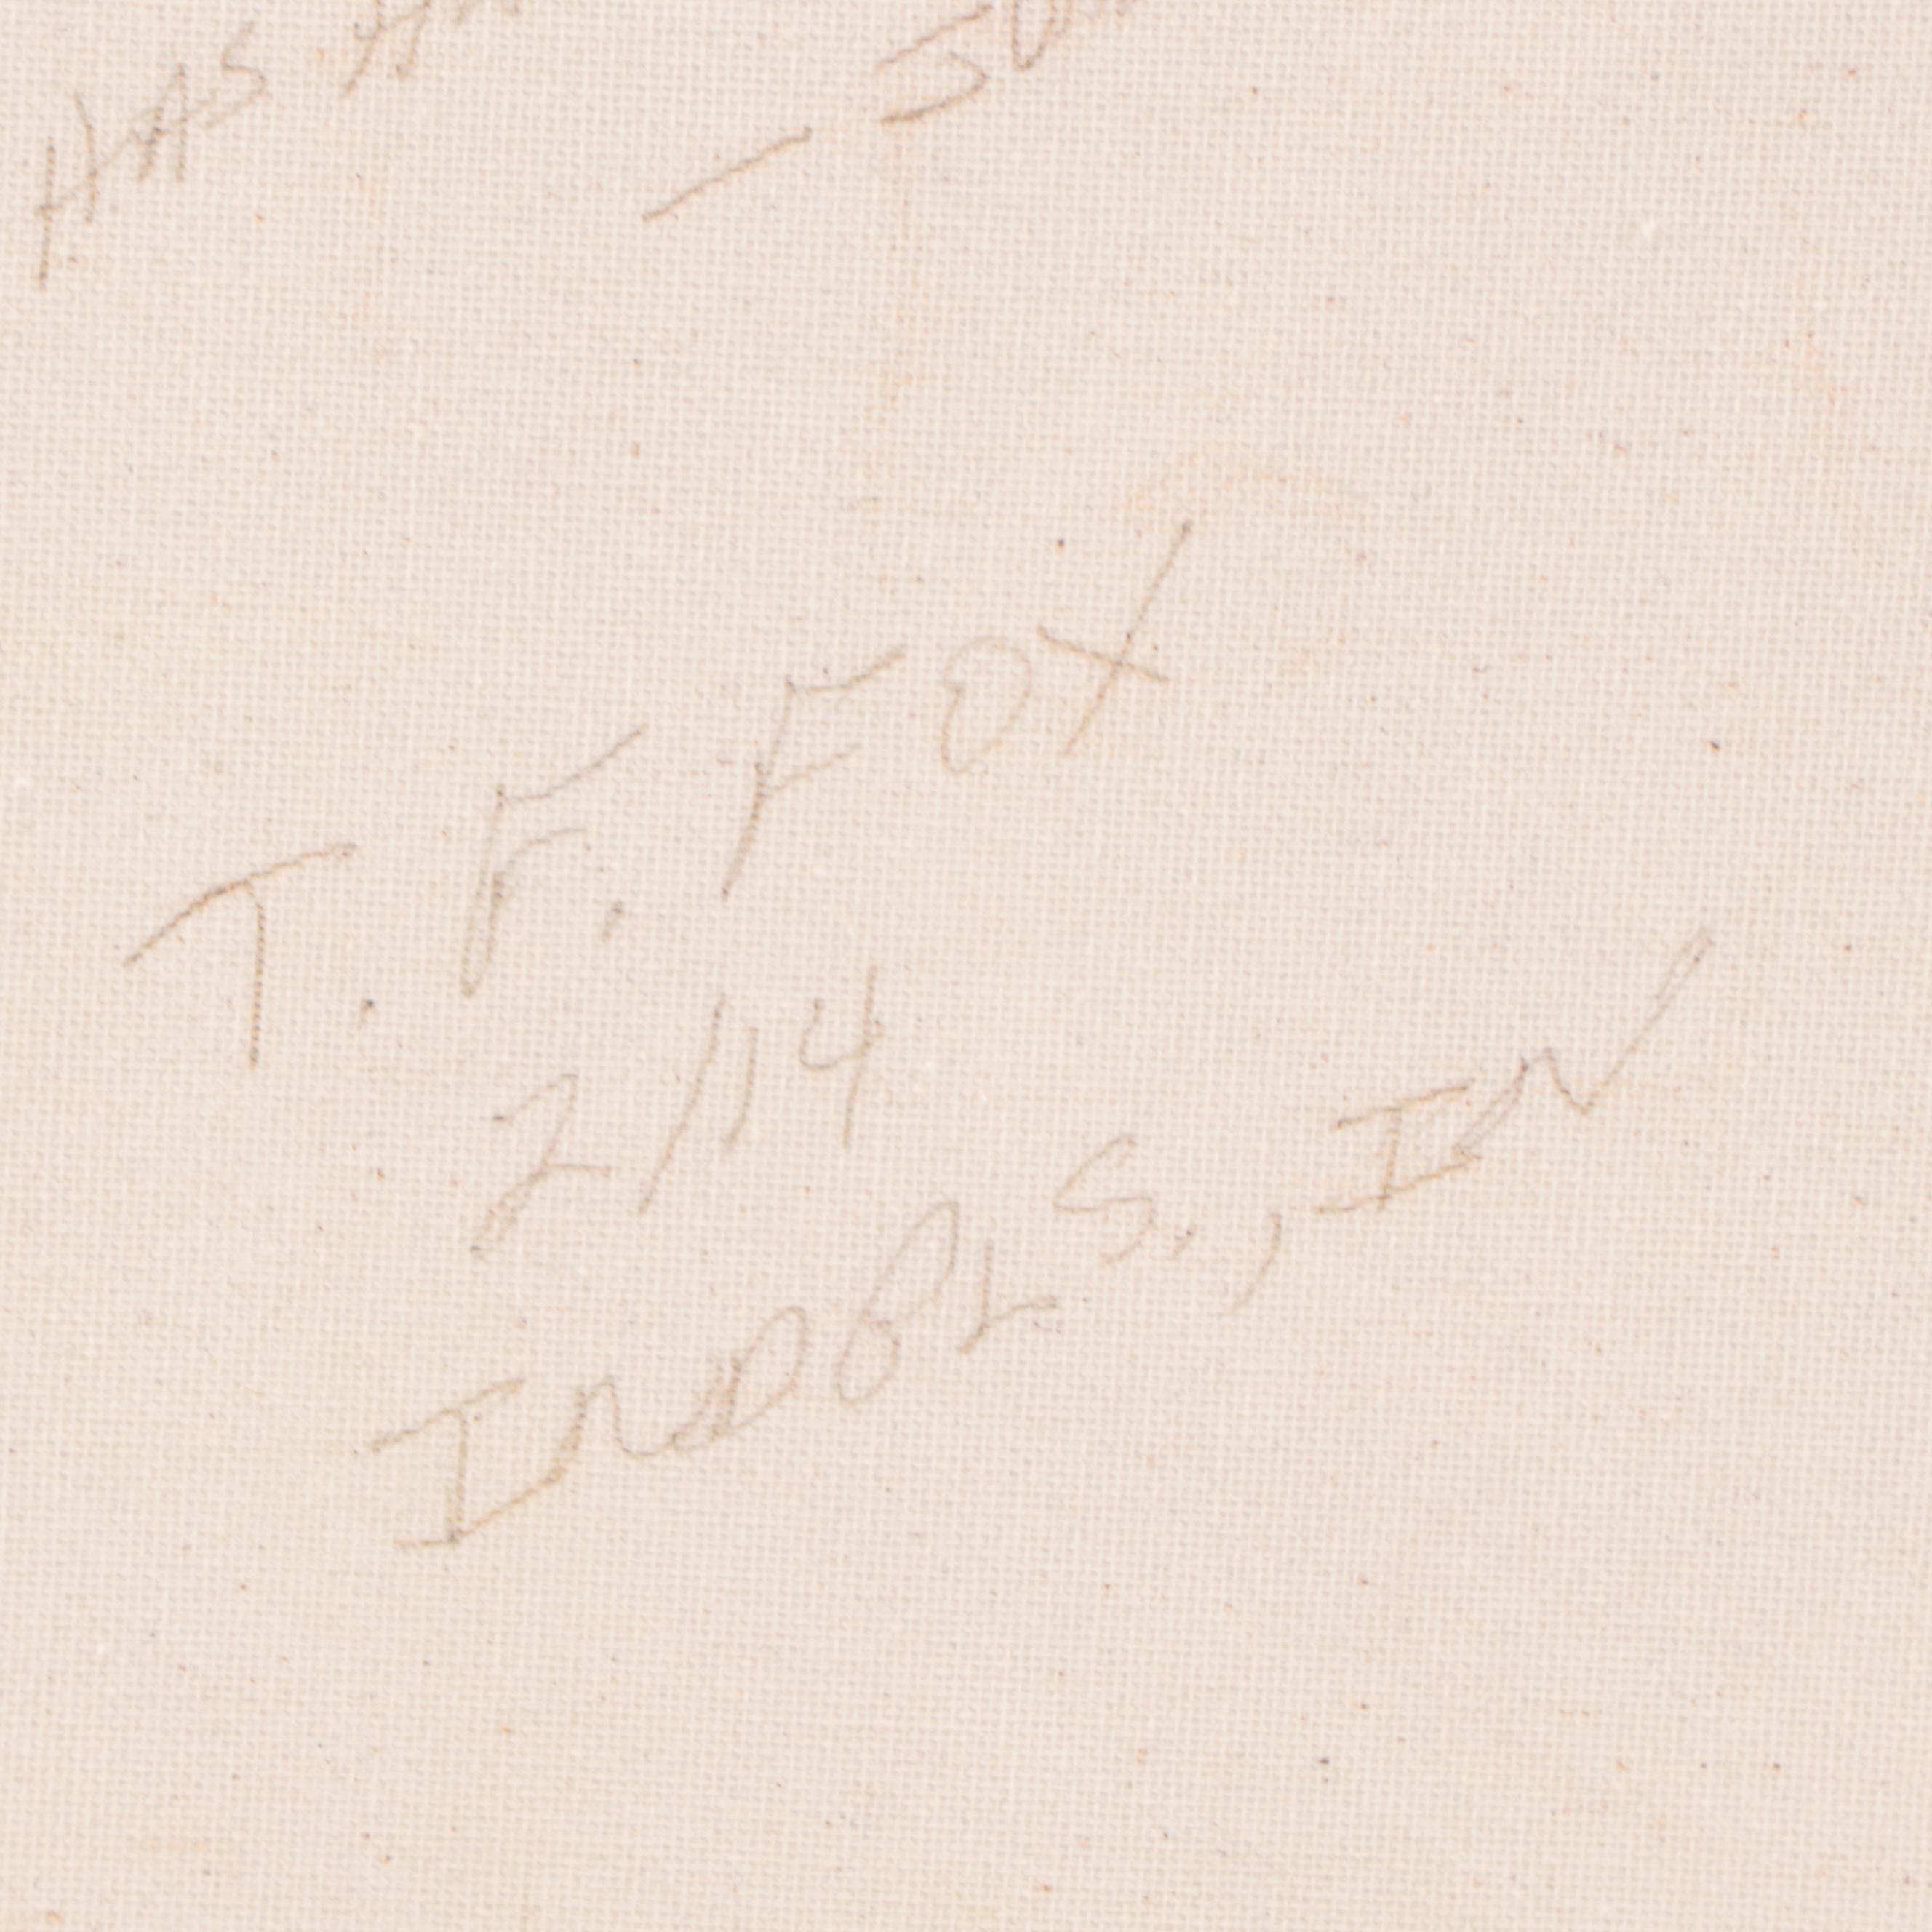 HAS
T. F. FOX
2/14
INDPLS., IN